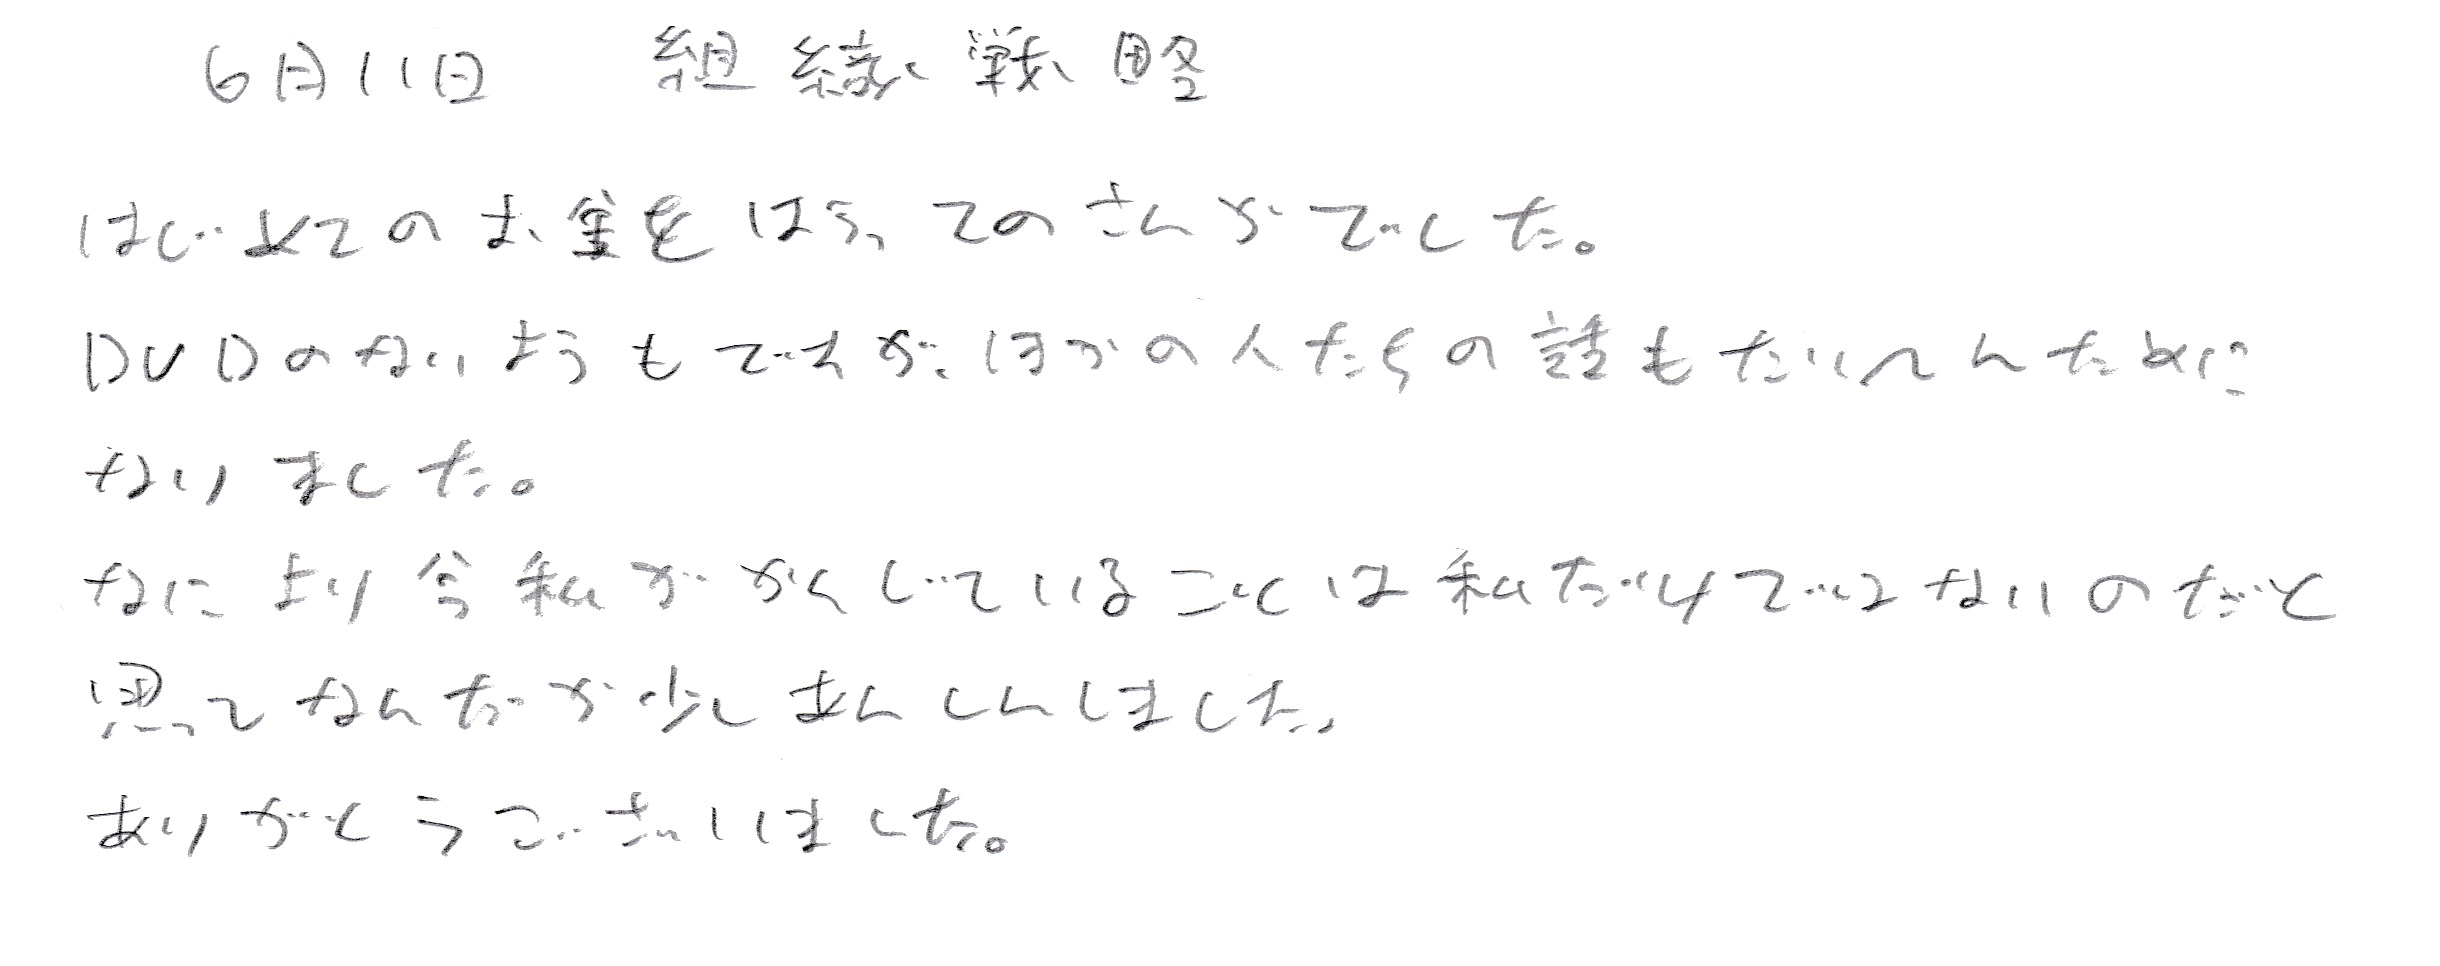 6月11日　組織戦略
はじめてのお金をはらってのさんかでした。
DVDのないようもですが、ほかの人たちの話もたいへんために
なりました。
なにより今私がかんじていることは私だけではないのだと
思ってなんだか少しあんしんしました。
ありがとうございました。